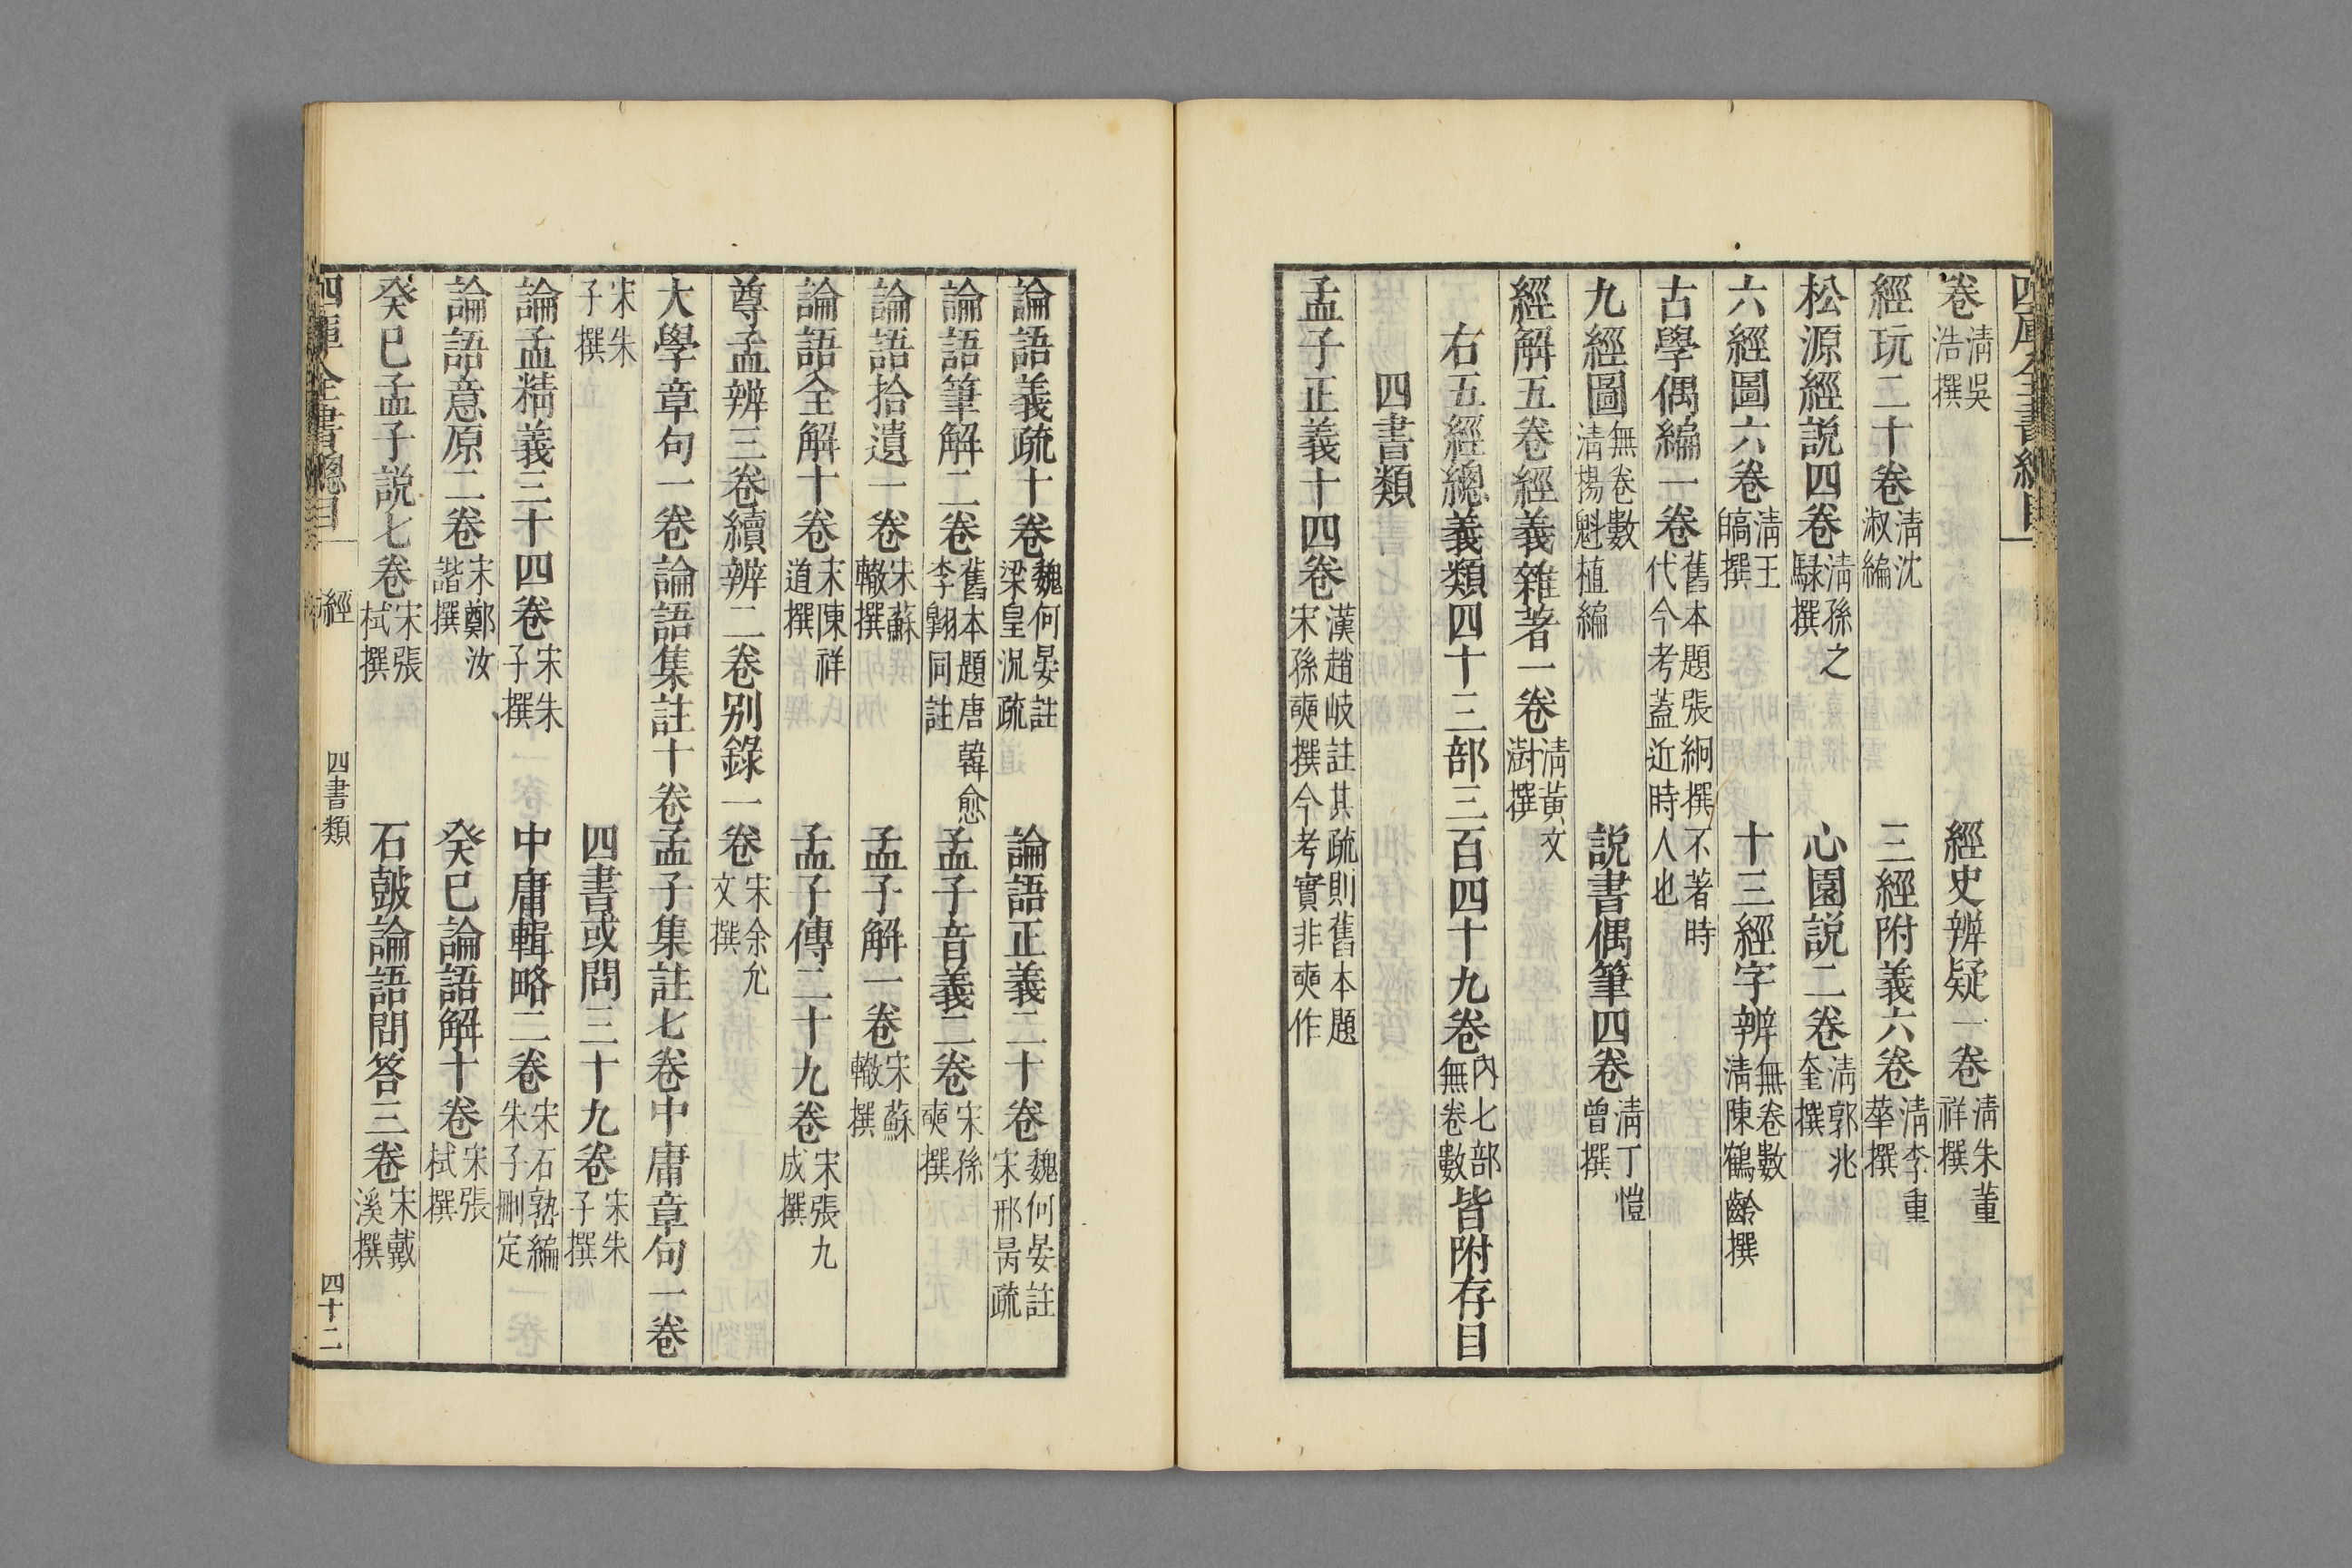 四庫全書總目
卷 清吳浩撰 經史辨疑一卷 清朱董祥撰
經玩二十卷 清沈淑編 三經附義六卷 清李重華撰
松源經説四卷 清孫之騄撰 心園説二卷 清郭兆奎撰
六經圖六卷 清王皜撰 十三經字辨 無卷數清陳鶴齡撰
古學偶編一卷 舊本題張絅撰不著時代今考蓋近時人也
九經圖 無卷數清楊魁植編 説書偶筆四卷 清丁愷曾撰
經解五卷經義雜著一卷 清黃文澍撰
右五經總義類四十三部三百四十九卷 內七部無卷數 皆附存目
四書類
孟子正義十四卷 漢趙岐註其疏則舊本題宋孫奭撰今考實非奭作
論語義疏十卷 魏何晏註梁皇況疏 論語正義二十卷 魏何晏註宋邢昺疏
論語筆解二卷 舊本題唐韓愈李翺同註 孟子音義二卷 宋孫奭撰
論語拾遺一卷 宋蘇轍撰 孟子解一卷 宋蘇轍撰
論語全解十卷 宋陳祥道撰 孟子傳二十九卷 宋張九成撰
尊孟辨三卷續辨二卷别錄一卷 宋余允文撰
大學章句一卷論語集註十卷孟子集註七卷中庸章句一卷
宋朱子撰 四書或問三十九卷 宋朱子撰
論孟精義三十四卷 宋朱子撰 中庸輯略二卷 宋石𡼖編朱子刪定
論語意原二卷 宋鄭汝諧撰 癸巳論語解十卷 宋張栻撰
癸巳孟子説七卷 宋張栻撰 石鼓論語問答三卷 宋戴溪撰
四庫全書總目 經 四書類 四十二